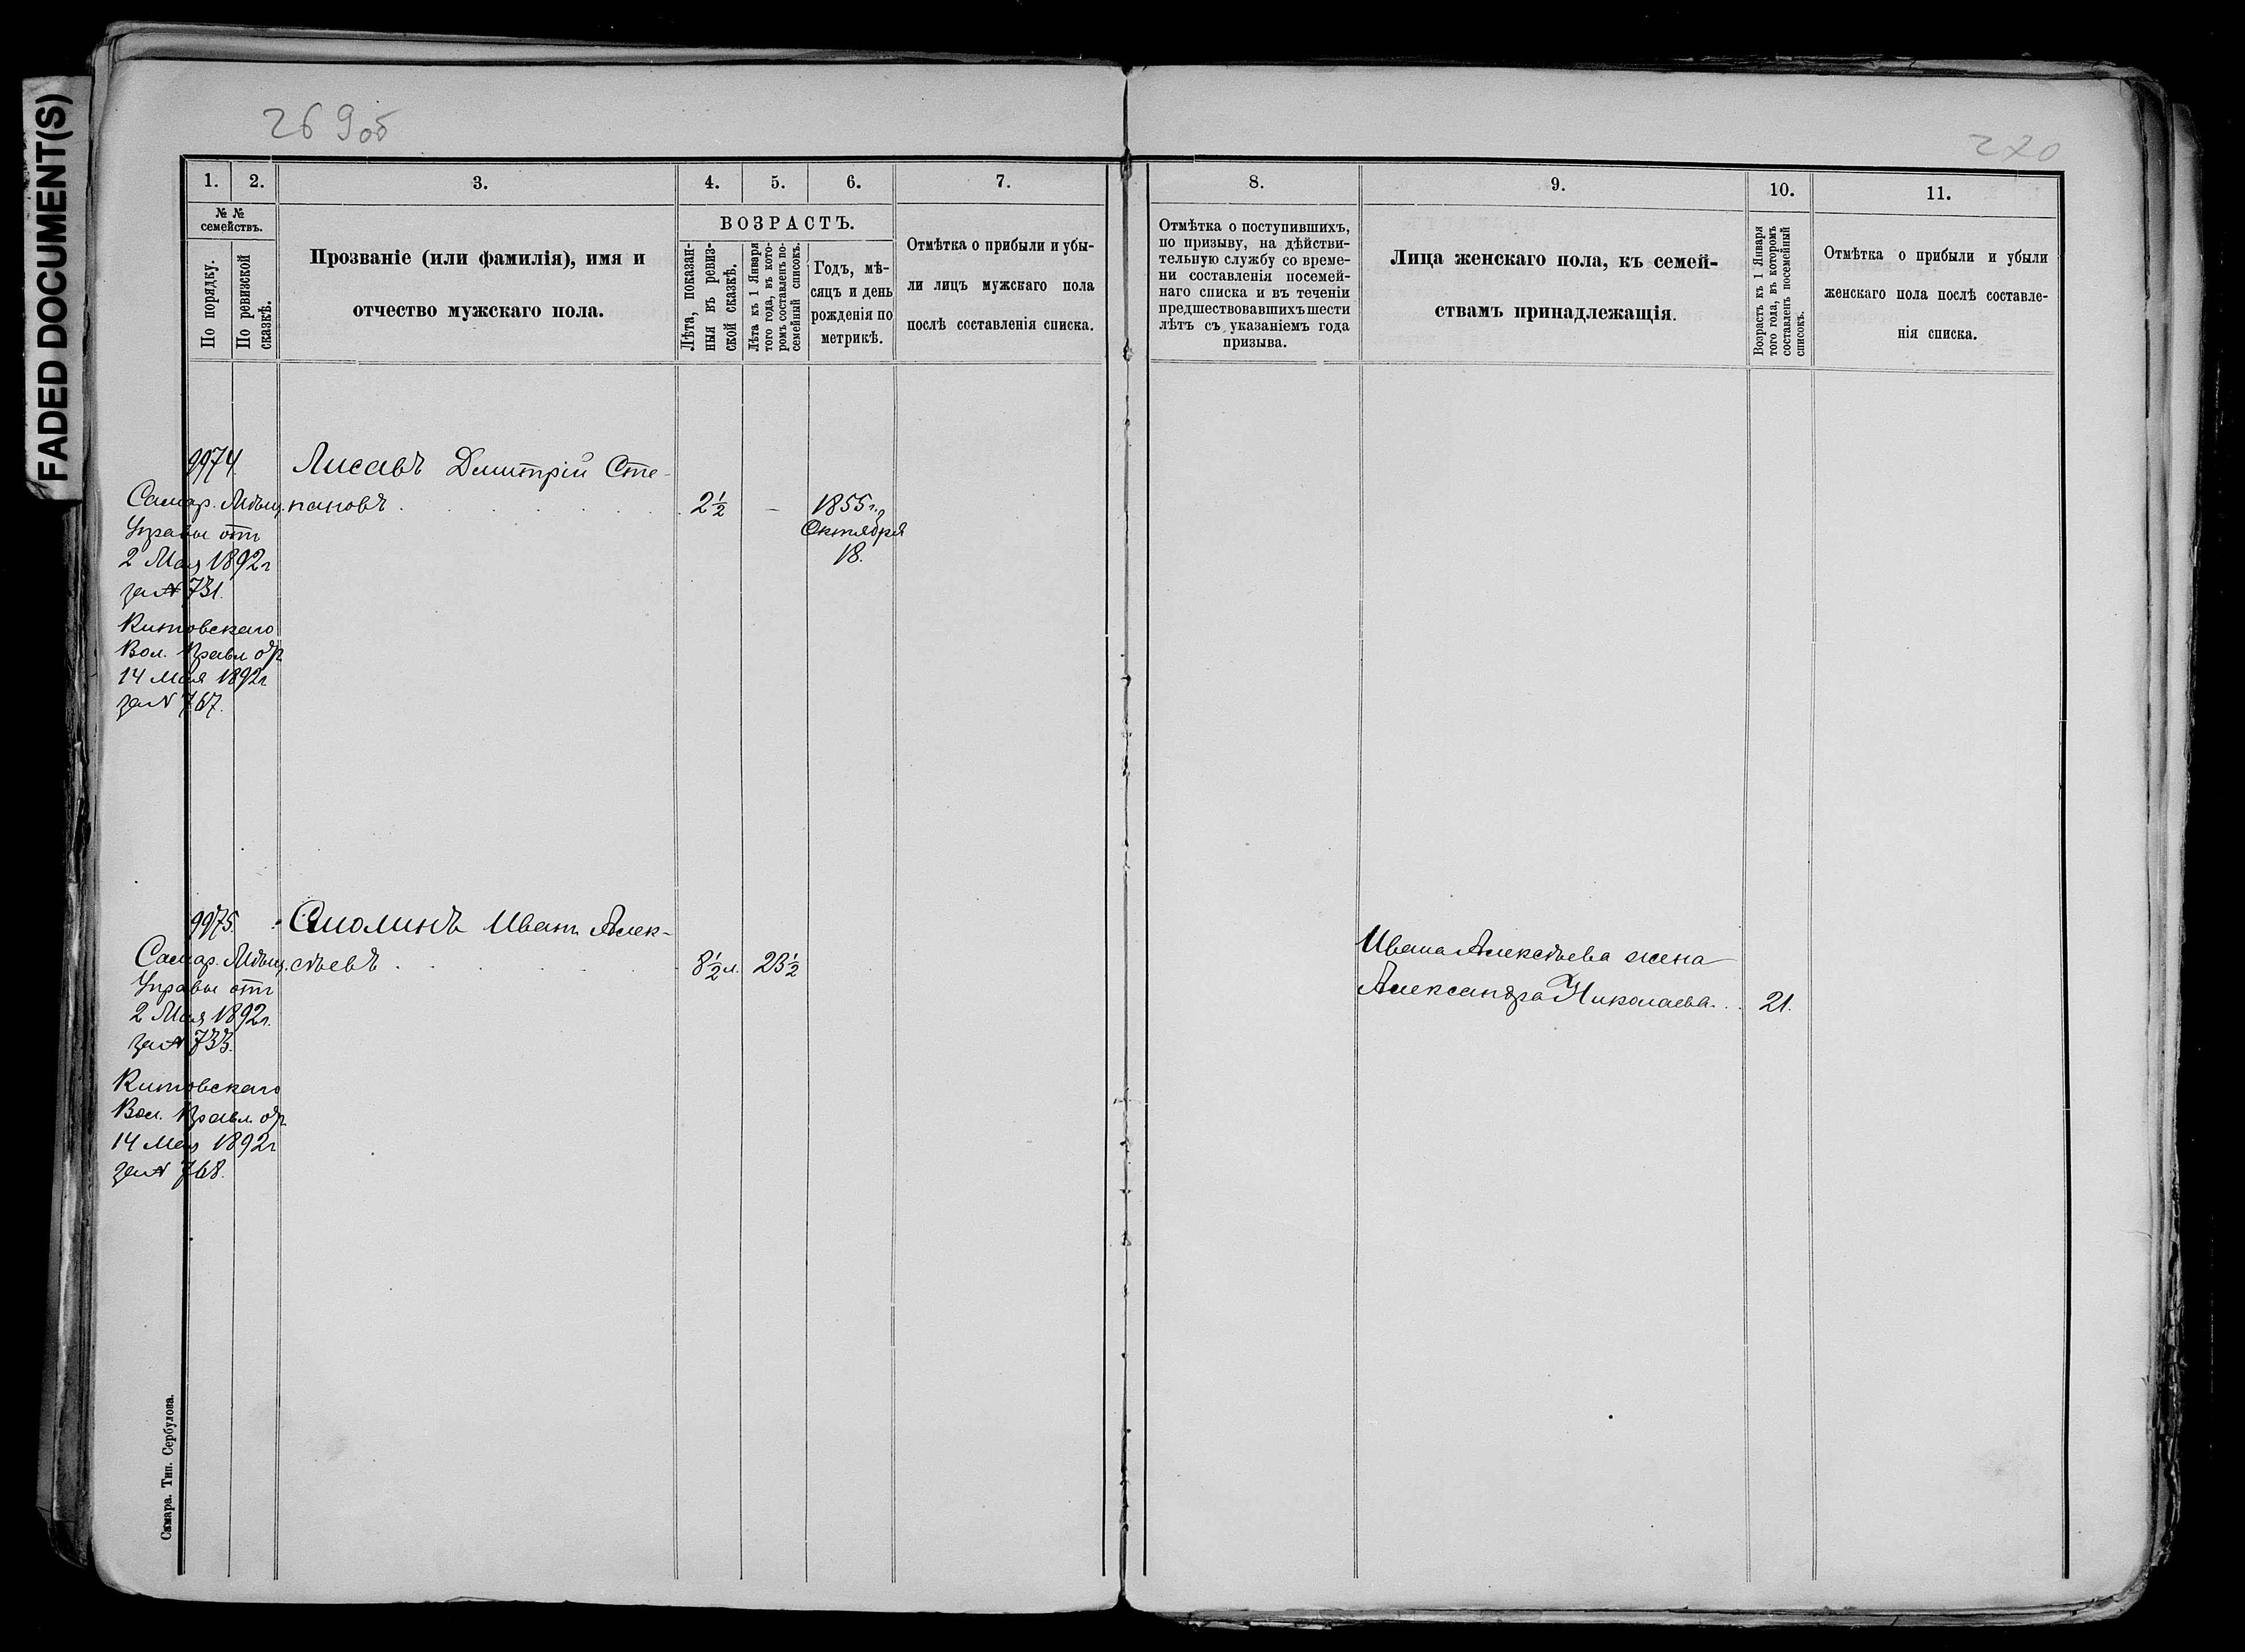 FADED DOCUMENT(S)
269 об
270
1.
2.
3.
4.
5.
6.
7.
№ №
семействъ.
По порядку.
По ревизской
сказкѣ.
Прозваніе (или фамилія), имя и
отчество мужскаго пола.
ВОЗРАСТЪ.
Лѣта, показан-
ныя въ ревиз-
ской сказкѣ.
Лѣта къ 1 Января
того года, въ кото-
ромъ составленъ по-
семейный списокъ.
Годъ, мѣ-
сяцъ и день
рожденія по
метрикѣ.
Отмѣтка о прибыли и убы-
ли лицъ мужскаго пола
послѣ составленія списка.
8.
9.
10.
11.
Отмѣтка о поступившихъ,
по призыву, на дѣйстви-
тельную службу со време-
ни составленія посемей-
наго списка и въ теченіи
предшествовавшихъ шести
лѣтъ съ указаніемъ года
призыва.
Лица женскаго пола, къ семей-
ствамъ принадлежащія.
Возрастъ къ 1 Января
того года, въ которомъ
составленъ посемейный
списокъ.
Отмѣтка о прибыли и убыли
женскаго пола послѣ составле-
нія списка.
9974
Самар. Мѣщ.
Управы отъ
2 Мая 1892 г
за № 731.
Китовскаго
Вол. Правл.
14 Мая 1892 г
за № 767.
Лисавъ Дмитрій Сте-
пановъ
2½
—
1855 г.
Октября
18.
9975.
Самар. Мѣщ.
Управы отъ
2 Мая 1892 г.
за № 733.
Китовскаго
Вол. Правл.
14 Мая 1892 г
за № 768.
Смолинъ Иванъ Алек-
сѣевъ
8½ л.
23½
Ивана Алексѣева жена
Александра Николаева
21.
Самара. Тип. Сербулова.